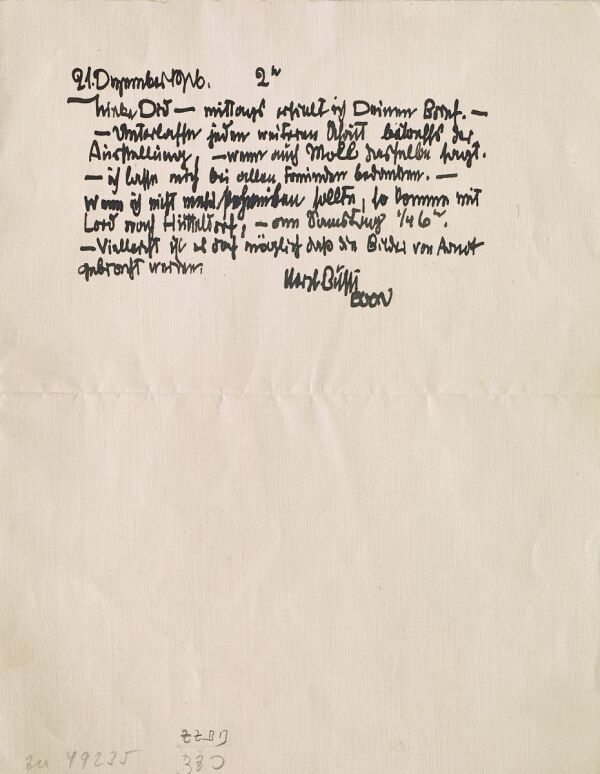 21. Dezember 1916. 2h
Liebe Did — mittags erhielt ich Deinen Brief. —
— Unterlasse jeden weiteren Schritt betreffs der
Ausstellung, — wenn auch Moll dasselbe sagt.
— ich lasse mich bei allen bedanken. —
wenn ich nicht mehr schreiben sollte, so komme mit
nach Hütteldorf, — am Samstag 1/4 6h.
— Vielleicht ist es doch möglich daß die Bilder von Arnot
gebracht werden.
Herzl.
EGON
zu 49235